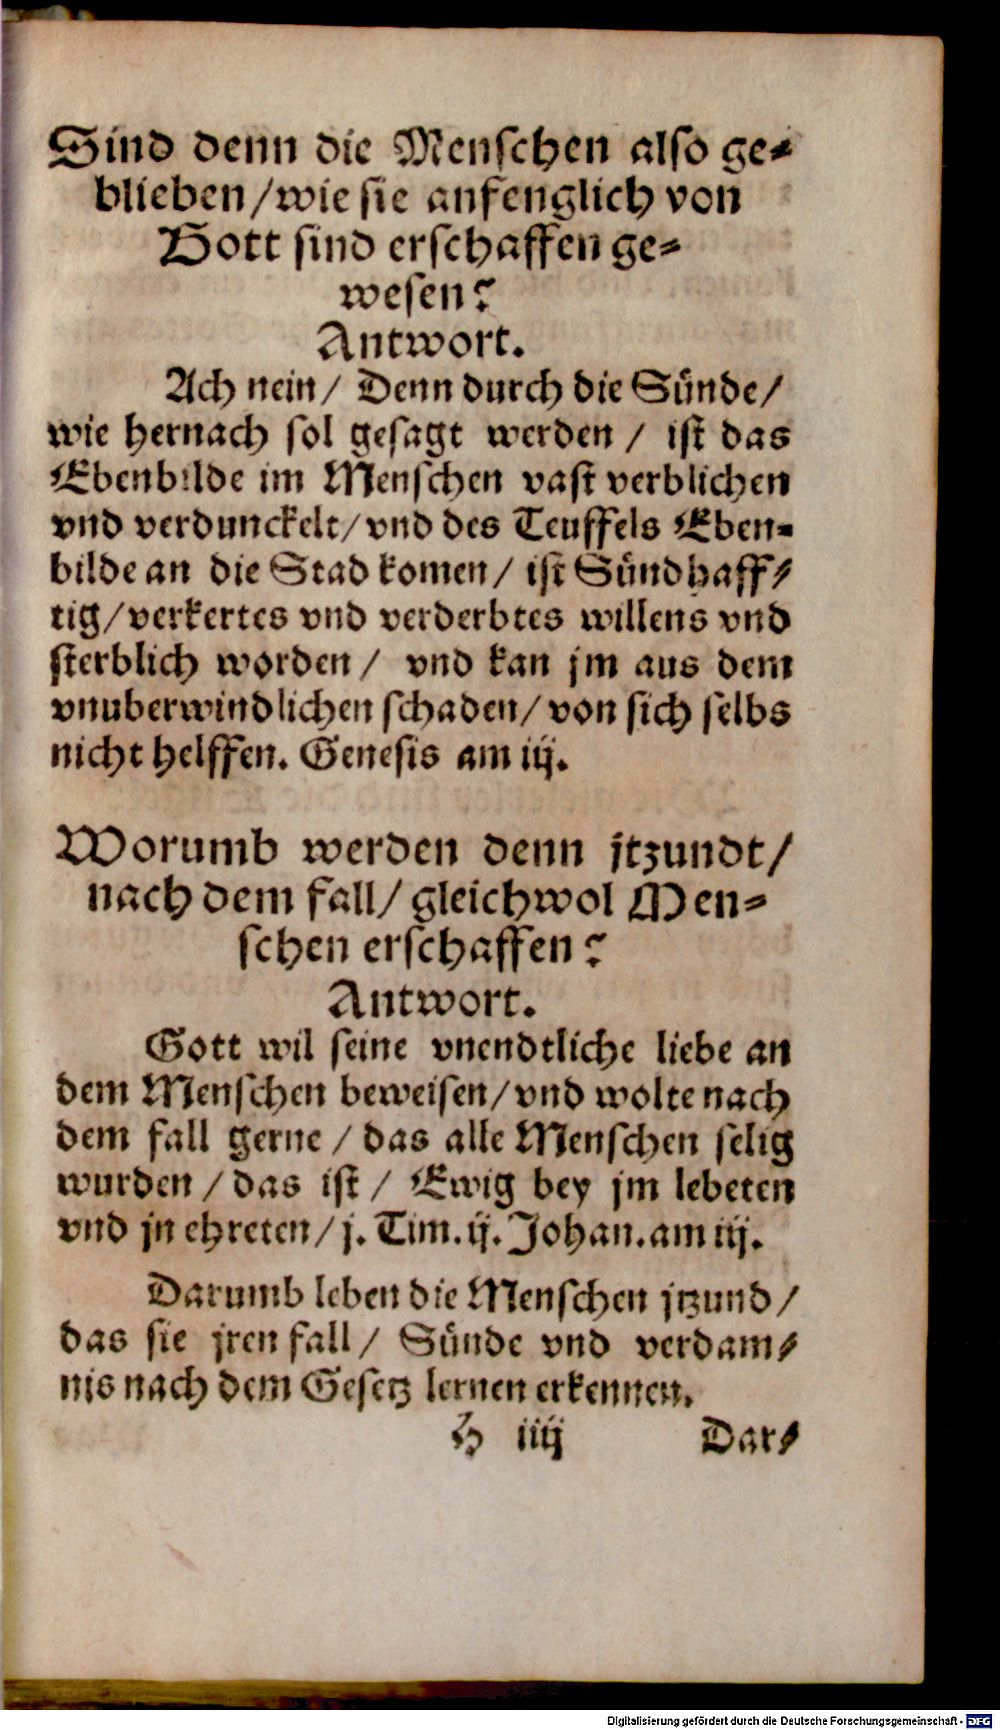 Sind denn die Menschen also ge⸗
blieben/wie sie anfenglich von
Gott sind erschaffen ge⸗
wesen?
Antwort.
Ach nein/ Denn durch die Sünde/
wie hernach sol gesagt werden / ist das
Ebenbilde im Menschen vast verblichen
vnd verdunckelt/vnd des Teuffels Eben⸗
bilde an die Stad komen/ ist Sündhaff⸗
tig/verkertes vnd verderbtes willens vnd
sterblich worden/ vnd kan jm aus dem
vnuberwindlichen schaden/von sich selbs
nicht helffen. Genesis am iij.
Worumb werden denn jtzundt/
nach dem fall/ gleichwol Men⸗
schen erschaffen?
Antwort.
Gott wil seine vnendtliche liebe an
dem Menschen beweisen/vnd wolte nach
dem fall gerne / das alle Menschen selig
wurden / das ist / Ewig bey jm lebeten
vnd jn ehreten/ j. Tim. ij. Johan. am iij.
Darumb leben die Menschen jtzund/
das sie jren fall/ Sünde vnd verdam⸗
nis nach dem Gesetz lernen erkennen.
H iiij Dar⸗
Digitalisierung gefördert durch die Deutsche Forschungsgemeinschaft - DFG